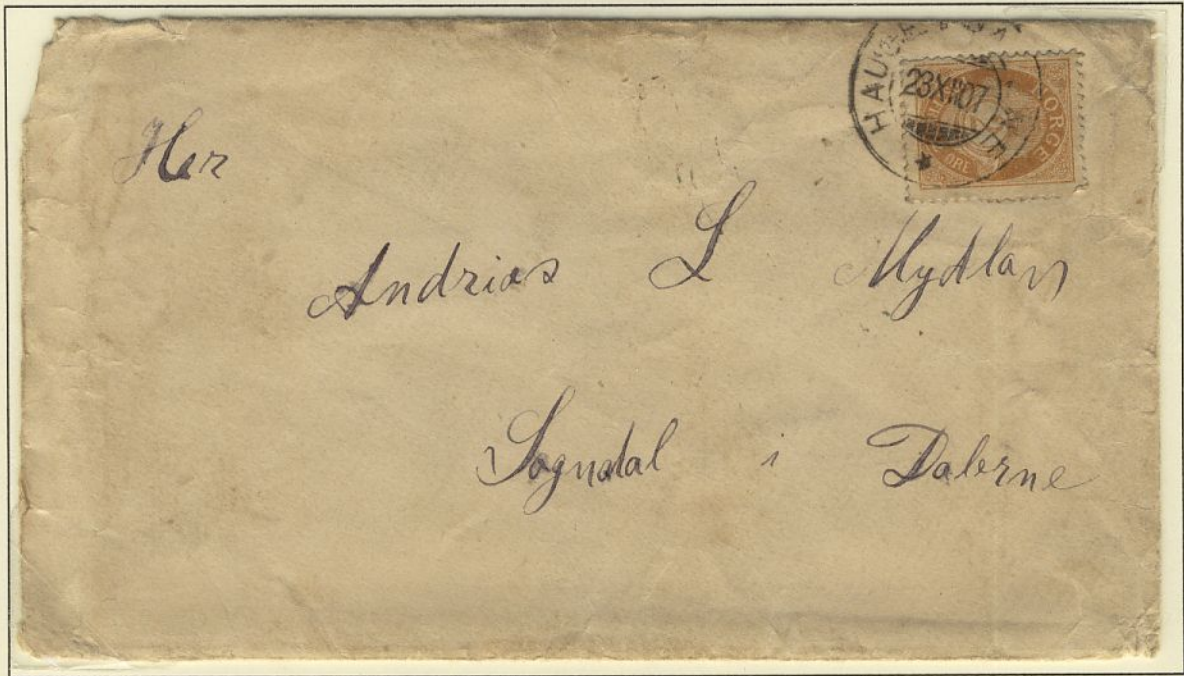 23 XII 07
NORGE
ØRE
Her
Andrias L Mydlan
Sogndal i Dalerne